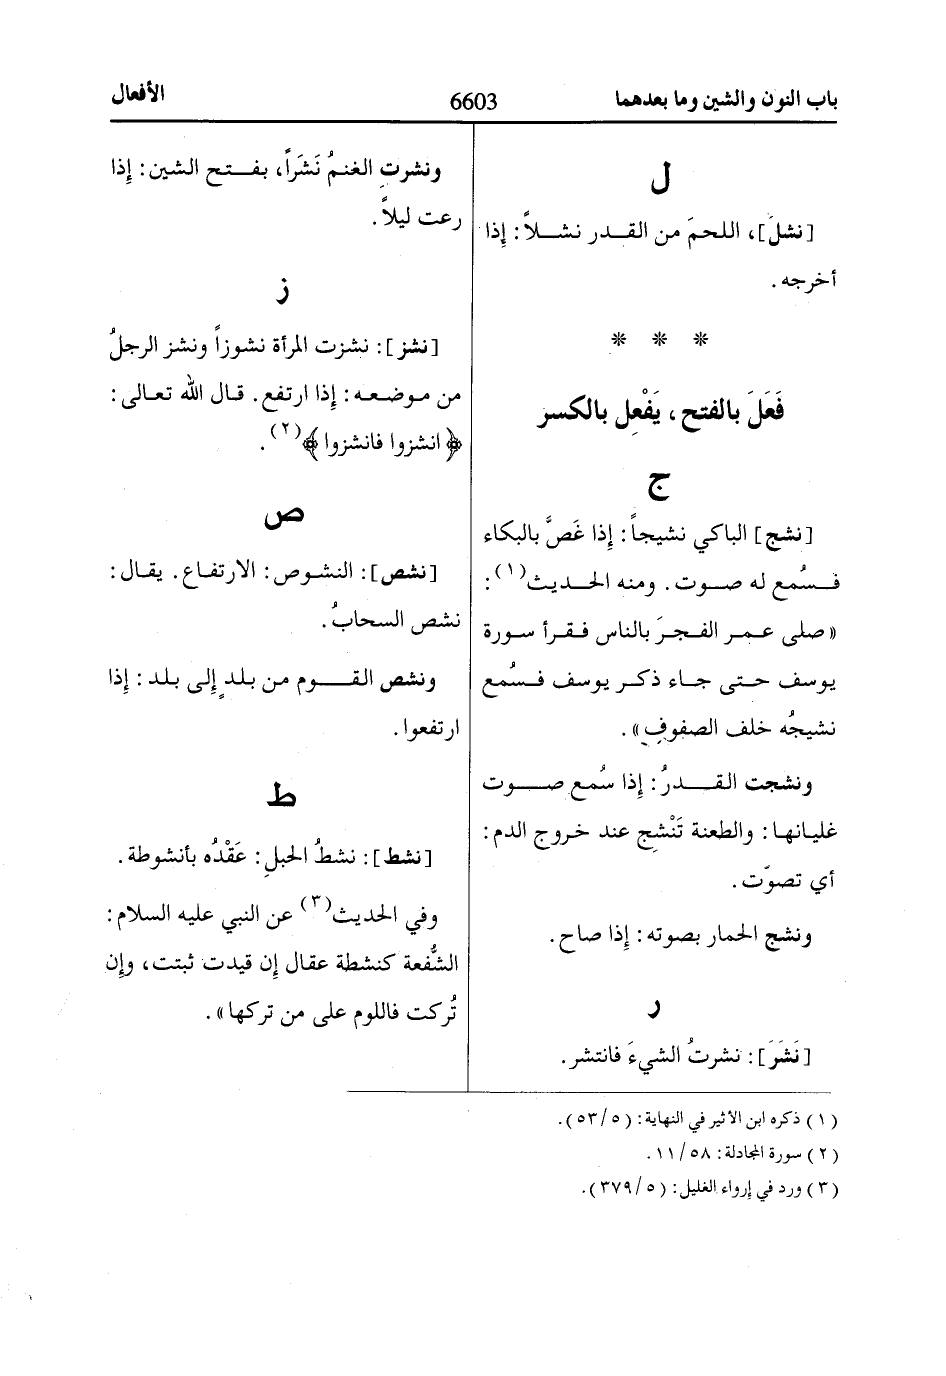 باب النون والشين وما بعدهما
6603
الأفعال
ل
[نشلَ]، اللحمَ من القدر نشلاً: إذا
أخرجه.
* * *
فَعَلَ بالفتح، يَفْعِل بالكسر
ج
[نشج] الباكي نشيجاً: إذا غَصَّ بالبكاء
فسُمع له صوت. ومنه الحديث(١):
«صلى عمر الفجرَ بالناس فقرأ سورة
يوسف حتى جاء ذكر يوسف فسُمع
نشيجُه خلف الصفوفِ».
ونشجت القدرُ: إذا سُمع صوت
غليانها: والطعنة تَنْشِج عند خروج الدم:
أي تصوّت.
ونشج الحمار بصوته: إذا صاح.
ر
[نَشَرَ]: نشرتُ الشيءَ فانتشر.
ونشرتِ الغنمُ نَشَراً، بفتح الشين: إذا
رعت ليلاً.
ز
[نشز]: نشزت المرأة نشوزاً ونشز الرجلُ
من موضعه: إذا ارتفع. قال الله تعالى:
﴿انشزوا فانشزوا﴾(٢).
ص
[نشص]: النشوص: الارتفاع. يقال:
نشص السحابُ.
ونشص القوم من بلدٍ إلى بلد: إذا
ارتفعوا.
ط
[نشط]: نشطُ الحبلِ: عَقْدُه بأنشوطة.
وفي الحديث(٣) عن النبي عليه السلام:
الشُّفعة كنشطة عقال إن قيدت ثبتت، وإن
تُركت فاللوم على من تركها».
(١) ذكره ابن الأثير في النهاية: (٥/٥٣).
(٢) سورة المجادلة: ٥٨/١١.
(٣) ورد في إرواء الغليل: (٥/٣٧٩).